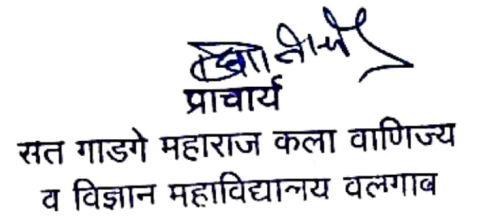 प्राचार्य
सत गाडगे महाराज कला वाणिज्य
व विज्ञान महाविद्यालय वलगाव